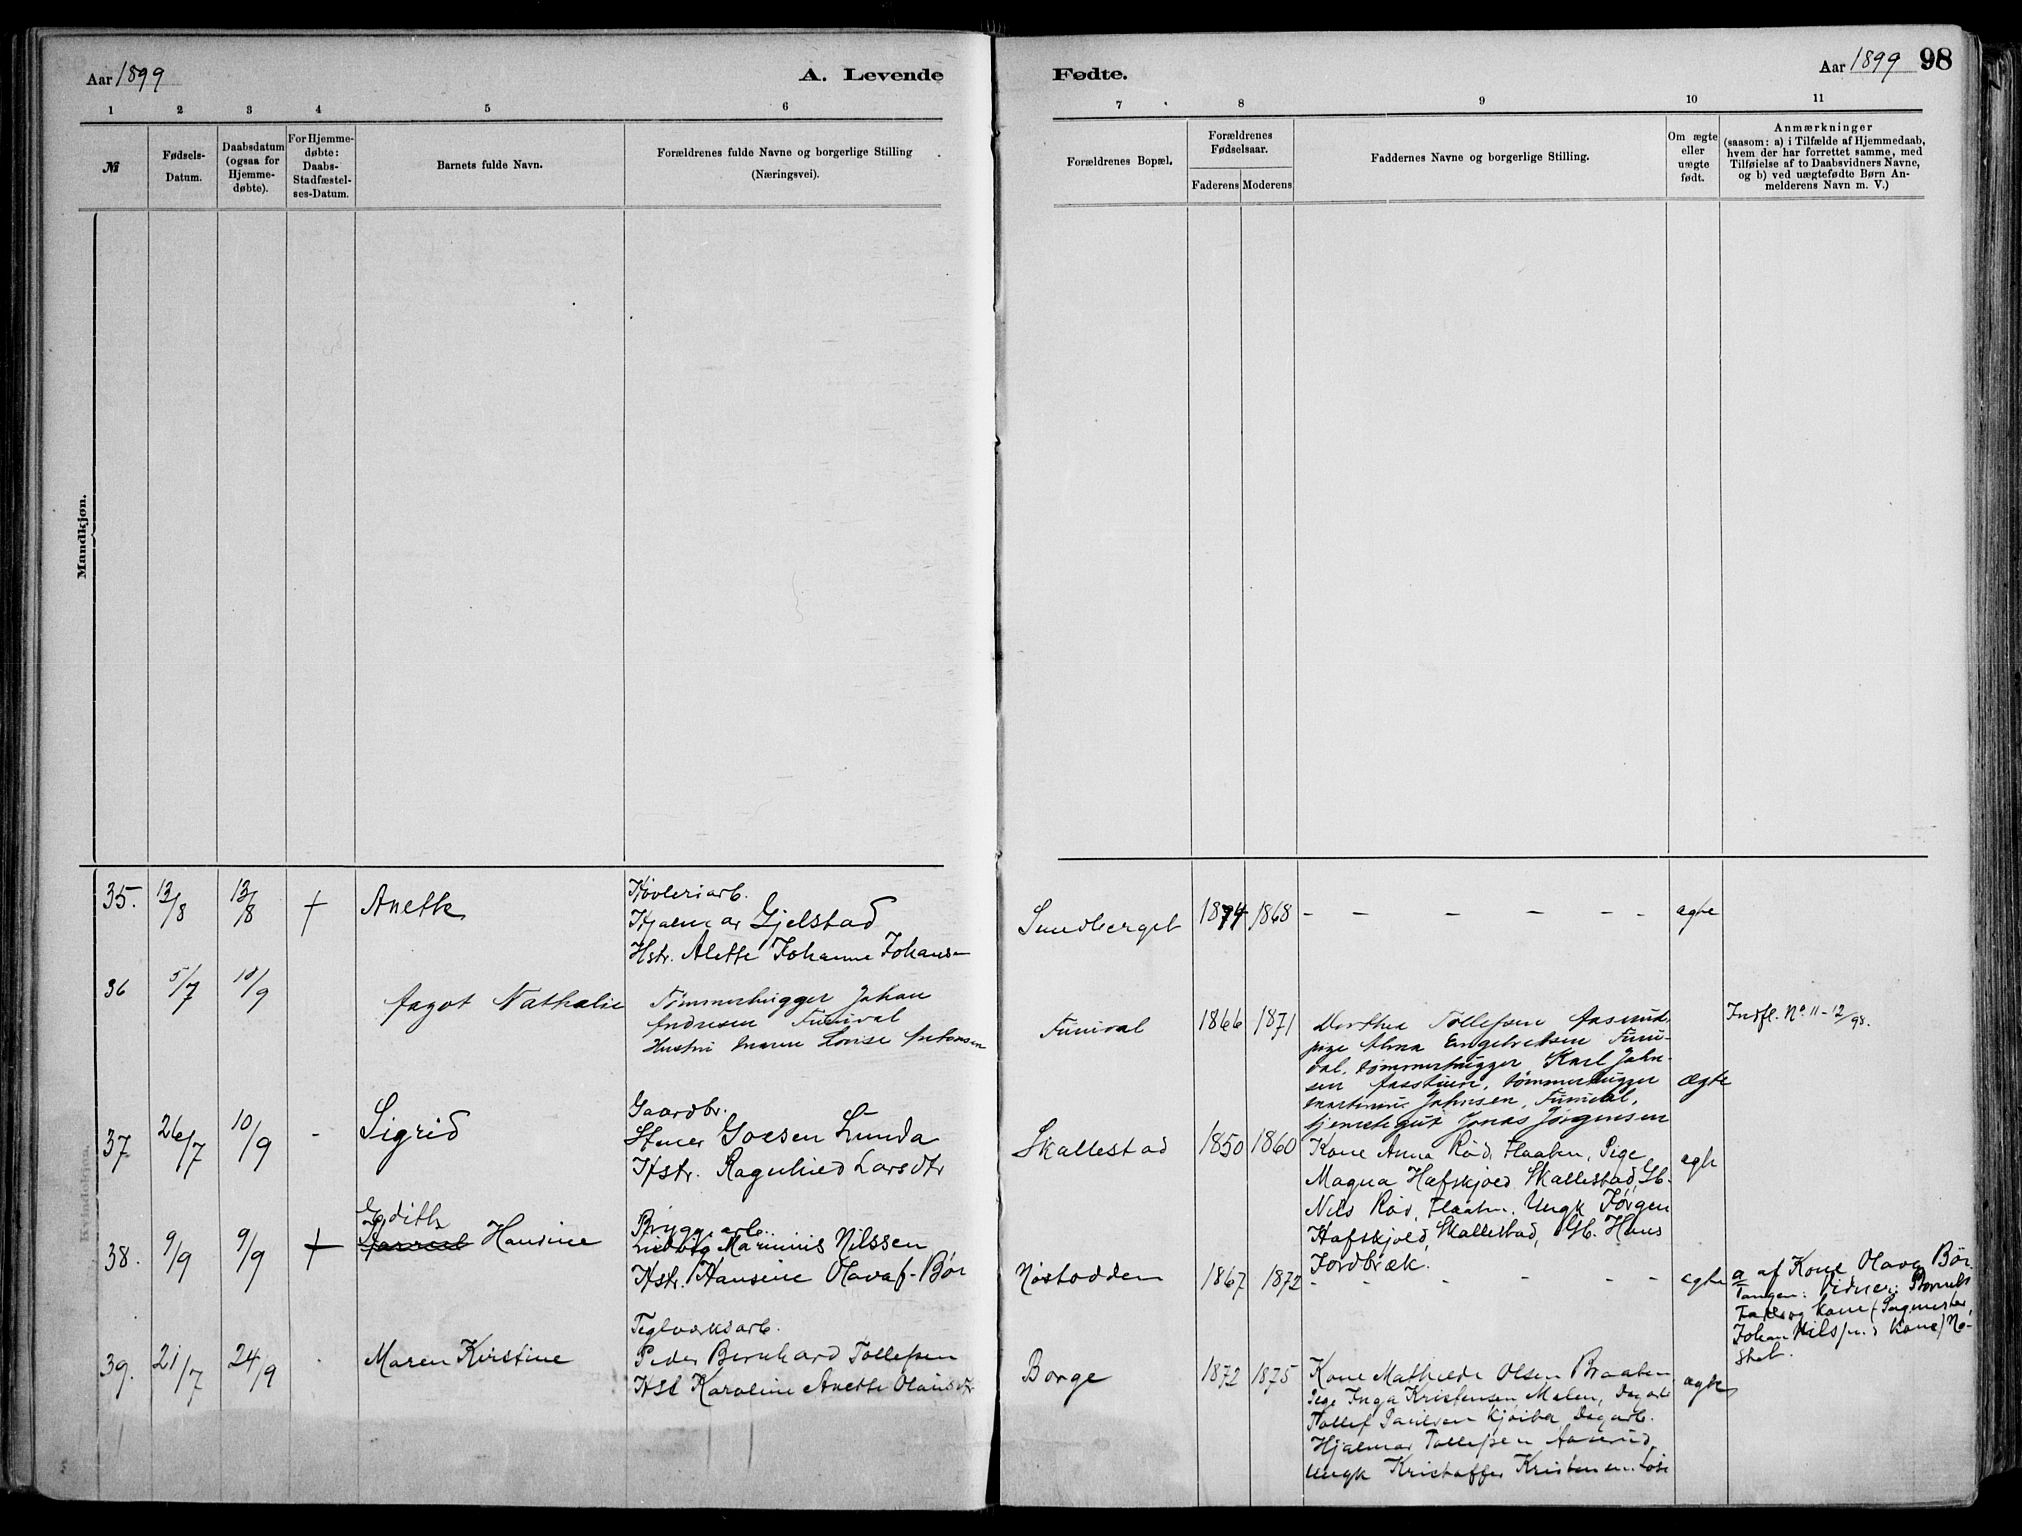 Aar 1899
A. Levende
Fødte.
Aar 1899 98
1 2 3 4 5 6 7 8 9 10 11
№
Fødsels-
Datum.
Daabsdatum
(ogsaa for
Hjemme-
døbte).
For Hjemme-
døbte:
Daabs-
Stadfæstel-
ses-Datum.
Barnets fulde Navn.
Forældrenes fulde Navne og borgerlige Stilling
(Næringsvei).
Forældrenes Bopæl.
Forældrenes
Fødselsaar.
Faderens Moderens
Faddernes Navne og borgerlige Stilling.
Om ægte
eller
uægte
født.
Anmærkninger
(saasom: a) i Tilfælde af Hjemmedaab,
hvem der har forrettet samme, med
Tilføielse af to Daabsvidners Navne,
og b) ved uægtefødte Børn An-
melderens Navn m. V.)
Mandkjøn.
Kvindekjøn.
35. 13/8 13/8 † Anette
Høvleriarb.
Hjalmar Gjelstad
Hstr. Alette Johanne Johansen
Sundberget 1874 1868 - - - - - - ægte
36 5/7 10/9 Aagot Nathalie
Tømmerhugger Johan
Andresen Furuval
Hustru Maren Lovise Antonsen
Furuval 1866 1871
Dorthea Tollefsen Aasrud,
pige Alma Engebretsen Furu-
val, tømmerhugger Karl John-
sen Aasstuen, tømmerhugger
Martinius Johnsen, Furuval,
tjenestegut Jonas Jørgensen
ægte
Indfl. No 11 - 12/98.
37 26/7 10/9 - Sigrid
Gaardbr.
Stener Goesen Lunda
Hstr. Ragnhild Larsdtr
Skallestad 1850 1860
Kone Anna Rød, Flaaten, Pige
Magna Hafskjold Skallestad, Gb.
Nils Rød, Flaaten, Ungk Jørgen
Hafskjold, Skallestad, Gb. Hans
Jordbræk.
ægte
38. 9/9 9/9 †
Edith
Hansine
Bryggearb.
Marinius Nilssen
Hstr. Hansine Olava f. Bør
Nøstodden 1867 1872 - - - - - ægte
a af Kone Olava Bør
Tangen: Vidner: Barnets
Fader og Kone (Sagmester
Johan Nilsen's Kone) Nø-
39. 21/7 24/9 Maren Kirstine
Teglværksarb.
Peder Bernhard Tollefsen
Hst Karoline Anette Olausdtr
Borge 1872 1875
Kone Mathilde Olsen Braaten
Pige Inga Kristensen Malen, Dagarb
Tollef Paulsen Dagarb.
Hjalmar Tollefsen Aasrud,
Ungk Kristoffer Kristensen
ægte